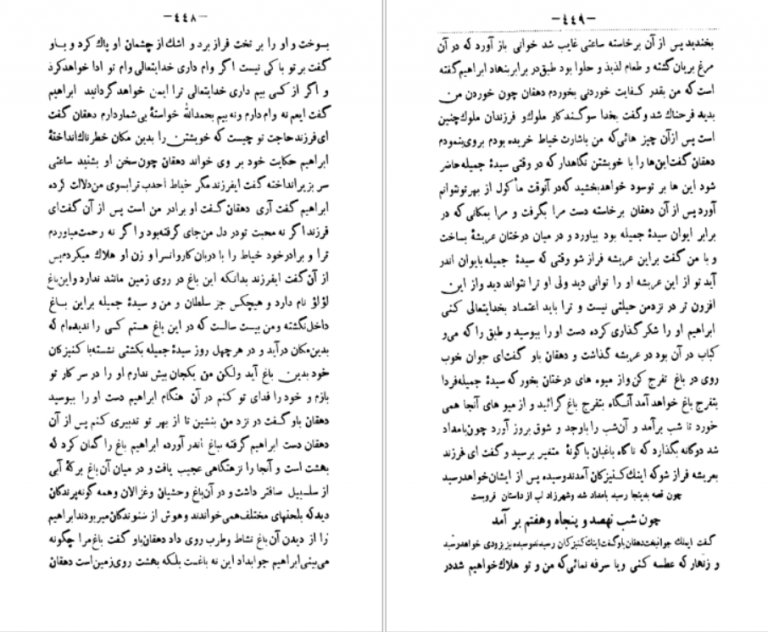 -۴۴۸-
بسوخت و او را بر تخت فراز برد و اشک از چشمان او پاک کرد و باو
گفت بر تو باکی نیست اگر وام داری خدایتعالی وام تو ادا خواهدکرد
و اگر از کسی بیم داری خدایتعالی ترا ایمن خواهدگردانید ابراهیم
گفت ایعم نه وام دارم ونه بیم بحمدالله خواستهٔ بی‌شماردارم دهقان گفت
ای‌فرزند حاجت تو چیست که خویشتن را بدین مکان خطرناك‌انداختهٔ
ابراهیم حکایت خود بر وی خواند دهقان چون‌سخن او بشنید ساعتی
سر بزیرانداخته گفت ایفرزند مگر خیاط احدب ترابسوی من‌دلالت کرده
ابراهیم گفت آری دهقان گفت او برادر من است پس از آن گفت‌ای
فرزند اگر نه محبت تودر دل من‌جای گرفته‌بود و اگر نه رحمت‌میاوردم
ترا و برادرخود خیاط را بادربان کاروانسرا و زن او هلاك میکردم‌پس
از آن گفت ایفرزند بدانکه این باغ در روی زمین مانند ندارد واین‌باغ
لؤلؤ نام دارد و هیچکس جز سلطان و من و سیدهٔ جمیله براین باغ
داخل‌نگشته ومن بیست سالست که در این‌باغ هستم کسی را ندیده‌ام که
بدین‌مکان درآید و در هرچهل روز سیدهٔ جمیله بکشتی نشسته‌با کنیزکان
خود بدین باغ آید ولکن من یکجان بیش ندارم او را در سر کار تو
بازم و خود را فدای تو کنم در آن هنگام ابراهیم دست او را ببوسید
دهقان باو گفت در نزد من بنشین تا از بهر تو تدبیری کنم پس از آن
دهقان دست ابراهیم گرفته بباغ اندر آورد، ابراهیم باغ را گمان کرد که
بهشت است و آنجا را نزهتگاهی عجیب یافت و در میان آن‌باغ برکهٔ آبی
از سلسبیل صافتر داشت و در آن‌باغ وحشیان وغزالان وهمه گونه‌پرندگان
دیدکه بلحنهای مختلف‌همی‌خواندند وهوش از شنوندگان میربودند ابراهیم
را از دیدن آن‌باغ نشاط وطرب روی داد دهقان‌باو گفت باغ‌مرا چگونه
می‌بینی ابراهیم جوابداد این نه باغست بلکه بهشت روی‌زمین‌است دهقان
-۴۴۹-
بخندید پس از آن برخاسته ساعتی غایب شد خوانی باز آورد که در آن
مرغ بریان گشته و طعام لذیذ و حلوا بود طبق‌در برابرنهاد ابراهیم‌گفته
است که من بقدر کفایت خوردنی بخوردم دهقان چون خوردن من
بدید فرحناك شد وگفت بخدا سوگندکار ملوك‌و فرزندان ملوك‌چنین
است پس ازآن چیز هائی‌که من باشارت خیاط خریده بودم بروی‌بنمودم
دهقان گفت‌این‌ها را با خویشتن نگاهدار که در وقتی سیدهٔ جمیله‌حاضر
شود این ها بر توسود خواهدبخشید که‌در آنوقت ماکول از بهرتونتوانم
آورد پس از آن دهقان برخاسته دست مرا بگرفت و مرا بمکانی که در
برابر ایوان سیدهٔ جمیله بود بیاورد و در میان درختان عریشهٔ بساخت
و با من گفت براین عریشه فراز شو وقتی که سیدهٔ جمیله بایوان اندر
آید تو از این عریشه او را توانی دید ولی او ترا نتواند دید واز این
افزون تر در نزدمن حیلتی نیست و ترا باید اعتماد بخدایتعالی کنی
ابراهیم او را شکر گذاری کرده دست او را ببوسید و طبق را که می‌و
کباب در آن بود در عریشه گذاشت و دهقان باو گفت‌ای جوان خوب
روی در باغ تفرج کن‌واز میوه های درختان بخور که سیدهٔ جمیله‌فردا
بتفرج باغ خواهد آمد آنگاه بتفرج باغ گرائید و از میو های آنجا همی
خورد تا شب برآمد و آن‌شب را باوجد و شوق بروز آورد چون‌بامداد
شد دوگانه بگذارد که ناگاه باغبان باگونهٔ متغیر برسید و گفت ای فرزند
بعریشه فراز شوکه اینك کنیزکان آمدندوسیده پس از ایشان‌خواهدرسید
چون قصه بدینجا رسید بامداد شد وشهرزاد لب از داستان فروبست
چون شب نهصد و پنجاه وهفتم بر آمد
گفت ایملك جوانبخت دهقان باو گفت اینك کنیزکان رسیدندوسیده‌نیز بزودی خواهدرسید
و زنهار که عطسه کنی ویا سرفه نمائی‌که من و تو هلاك خواهیم شددر